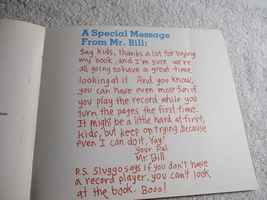 A Special Message
From Mr. Bill:
Say kids, thanks a lot for buying
my book, and I'm sure we're
all going to have a great time
looking at it. And you know,
you can have even more fun if
you play the record while you
turn the pages the first time.
It might be a little hard at first,
kids, but keep on trying because
even I can do it, Yay!
Your Pal
Mr. Bill
P.S. Sluggo says if you don't have
a record player, you can't look
at the book. Booo!